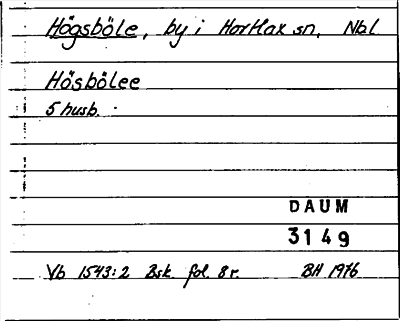 Högsböle, by i Hortlax sn, Nbl
Hösbölee
5 husb.
DAUM
3149
Vb 1543:2 Bsk. fol. 8 r. BH 1976